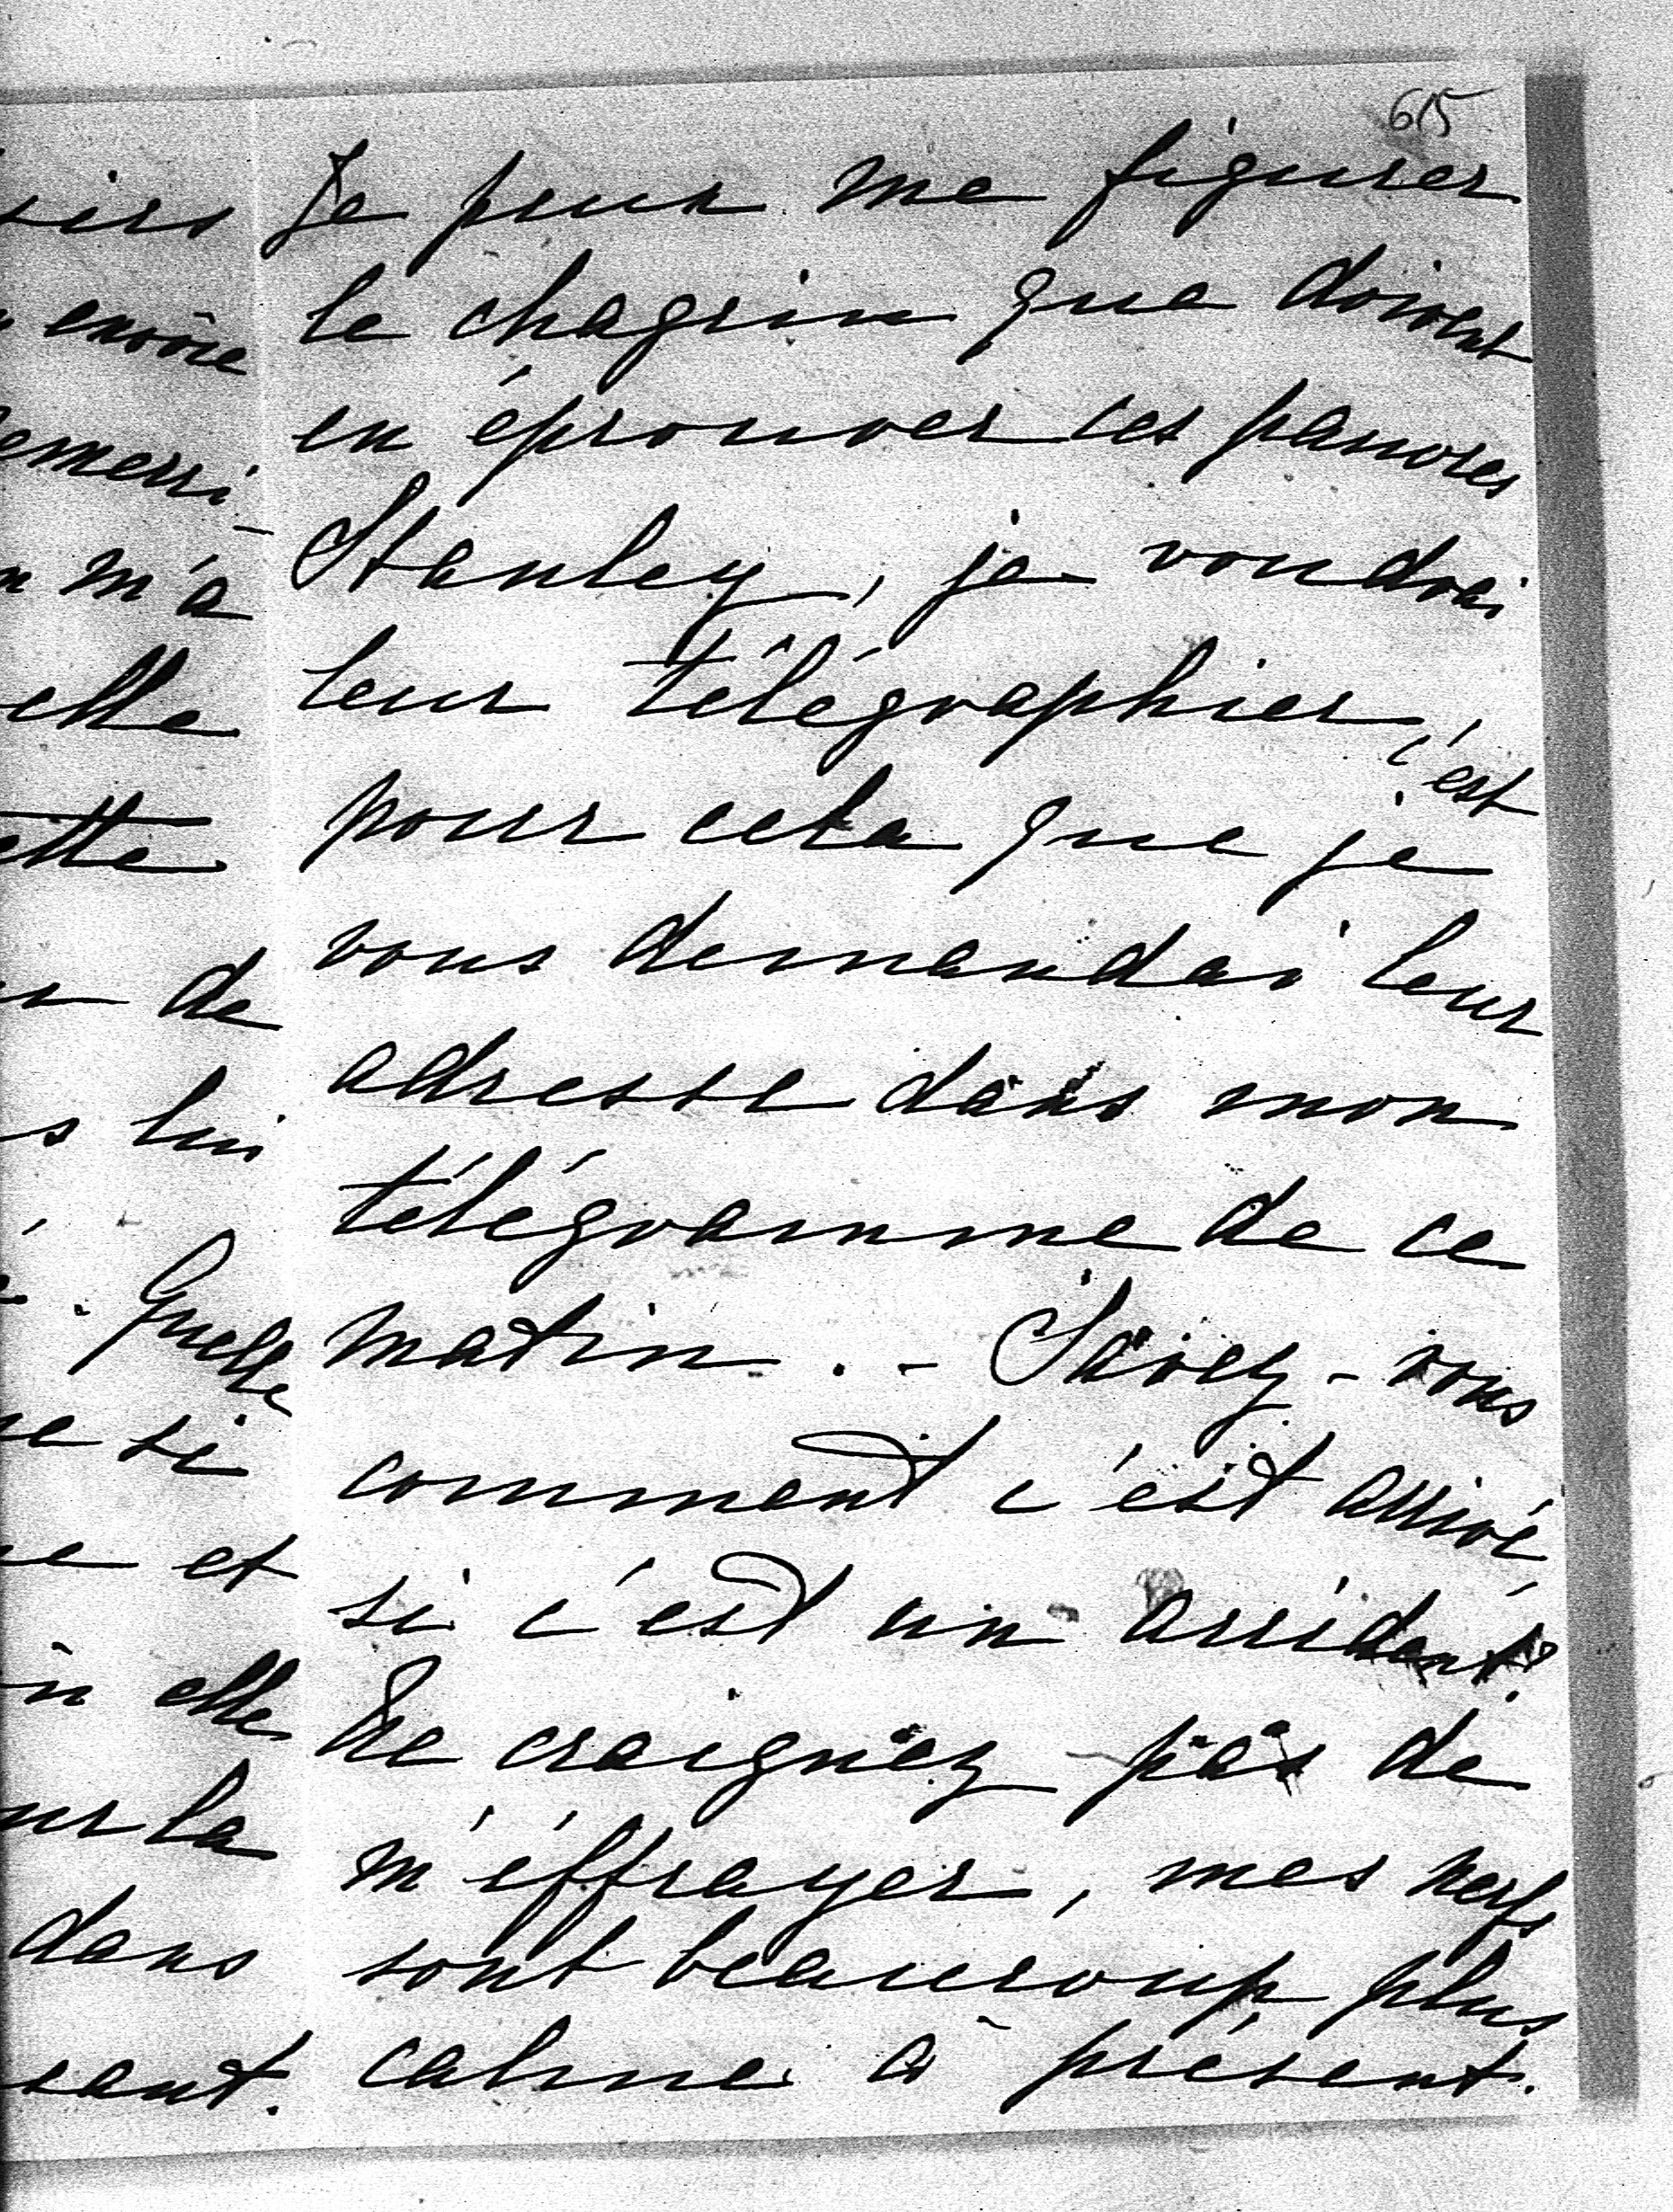 615
Je peux me figurer
le chagrin que doivent
en éprouver ces pauvres
Stanley, je voudrai
leur télégraphier,
c'est
pour cela que je
vous demandai leur
adresse dans mon
télégramme de ce
matin. - Savez-vous
comment c'est arrivé,
si c'est un accident?
Ne craignez pas de
m'éffrayer, mes nerfs
sont beaucoup plus
calme à présent.
envoie
m'a
elle
de
lui
Quelle
si
et
elle
la
dans